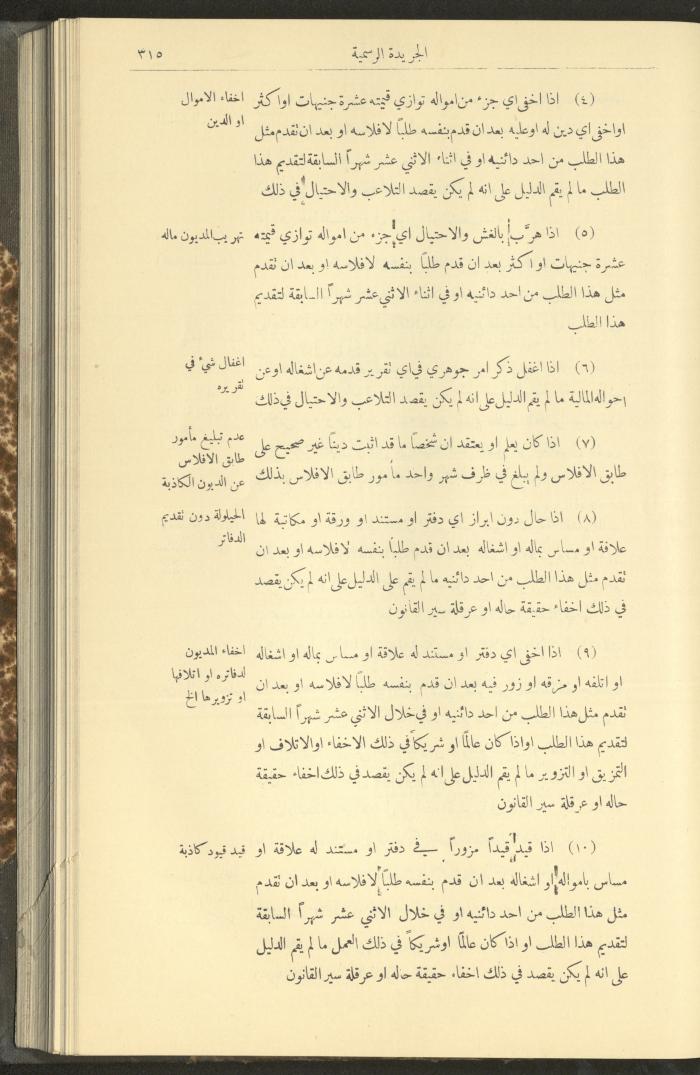 الجريدة الرسمية
٣١٥
(٤) اذا اخفى اي جزء من امواله توازي قيمته عشرة جنيهات او اكثر
او اخفى اي دين له او عليه بعد ان قدم بنفسه طلبًا لافلاسه او بعد ان تقدم مثل
هذا الطلب من احد دائنيه او في اثناء الاثني عشر شهراً السابقة لتقديم هذا
الطلب ما لم يقم الدليل على انه لم يكن يقصد التلاعب والاحتيال في ذلك
اخفاء الاموال
او الدين
(٥) اذا هرَّب بالغش والاحتيال اي جزء من امواله توازي قيمته
عشرة جنيهات او اكثر بعد ان قدم طلبًا بنفسه لافلاسه او بعد ان تقدم
مثل هذا الطلب من احد دائنيه او في اثناء الاثني عشر شهراً السابقة لتقديم
هذا الطلب
تهريب المديون ماله
(٦) اذا اغفل ذكر امر جوهري في اي تقرير قدمه عن اشغاله او عن
احواله المالية ما لم يقم الدليل على انه لم يكن يقصد التلاعب والاحتيال في ذلك
اغفال شيء في
تقريره
(٧) اذا كان يعلم او يعتقد ان شخصًا ما قد اثبت دينًا غير صحيح على
طابق الافلاس ولم يبلغ في ظرف شهر واحد مأمور طابق الافلاس بذلك
عدم تبليغ مأمور
طابق الافلاس
عن الديون الكاذبة
(٨) اذا حال دون ابراز اي دفتر او مستند او ورقة او مكاتبة لها
علاقة او مساس بماله او اشغاله بعد ان قدم طلبًا بنفسه لافلاسه او بعد ان
تقدم مثل هذا الطلب من احد دائنيه ما لم يقم على الدليل على انه لم يكن يقصد
في ذلك اخفاء حقيقة حاله او عرقلة سير القانون
الحيلولة دون تقديم
الدفاتر
(٩) اذا اخفى اي دفتر او مستند له علاقة او مساس بماله او اشغاله
او اتلفه او مزقه او زور فيه بعد ان قدم بنفسه طلبًا لافلاسه او بعد ان
تقدم مثل هذا الطلب من احد دائنيه او في خلال الاثني عشر شهراً السابقة
لتقديم هذا الطلب او اذا كان عالمًا او شريكاً في ذلك الاخفاء او الاتلاف او
التمزيق او التزوير ما لم يقم الدليل على انه لم يكن يقصد في ذلك اخفاء حقيقة
حاله او عرقلة سير القانون
اخفاء المديون
لدفاتره او اتلافها
او تزويرها الخ
(١٠) اذا قيد قيداً مزوراً في دفتر او مستند له علاقة او
مساس بامواله او اشغاله بعد ان قدم بنفسه طلبًا لافلاسه او بعد ان تقدم
مثل هذا الطلب من احد دائنيه او في خلال الاثني عشر شهراً السابقة
لتقديم هذا الطلب او اذا كان عالمًا او شريكاً في ذلك العمل ما لم يقم الدليل
على انه لم يكن يقصد في ذلك اخفاء حقيقة حاله او عرقلة سير القانون
قيد قيود كاذبة